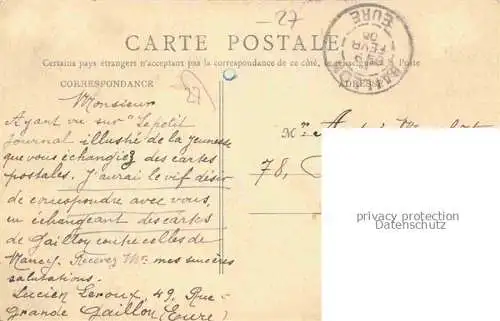 -27
CARTE POSTALE
Certains pays étrangers n'acceptent pas la correspondance de ce côté, se renseigner à la Poste
CORRESPONDANCE
ADRESSE
Monsieur
Ayant vu sur "Le petit
Journal illustré de la jeunesse
que vous échangiez des cartes
postales. J'aurai le vif désir
de correspondre avec vous,
en échangeant des cartes
de Gaillon contre celles de
Nancy. Recevez Mr mes sincères
salutations.
Lucien Leroux, 49, Rue
Grande Gaillon (Eure)
78,
GAILLON
EURE
FEVR
08
privacy protection
Datenschutz